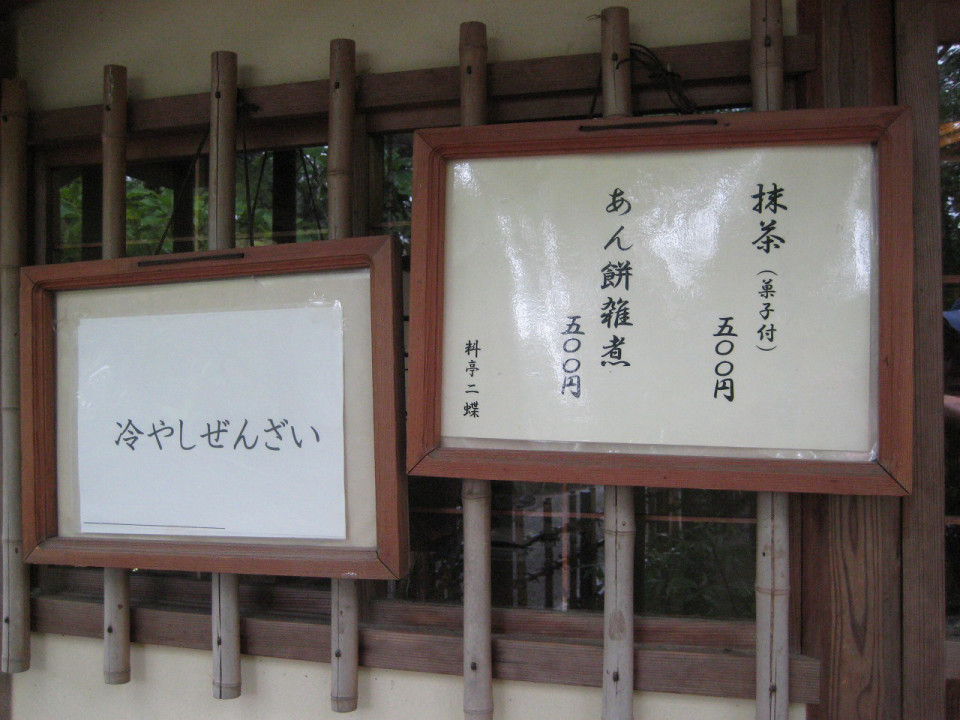 抹茶(菓子付)
五〇〇円
あん餅雑煮
五〇〇円
料亭二蝶
冷やしぜんざい